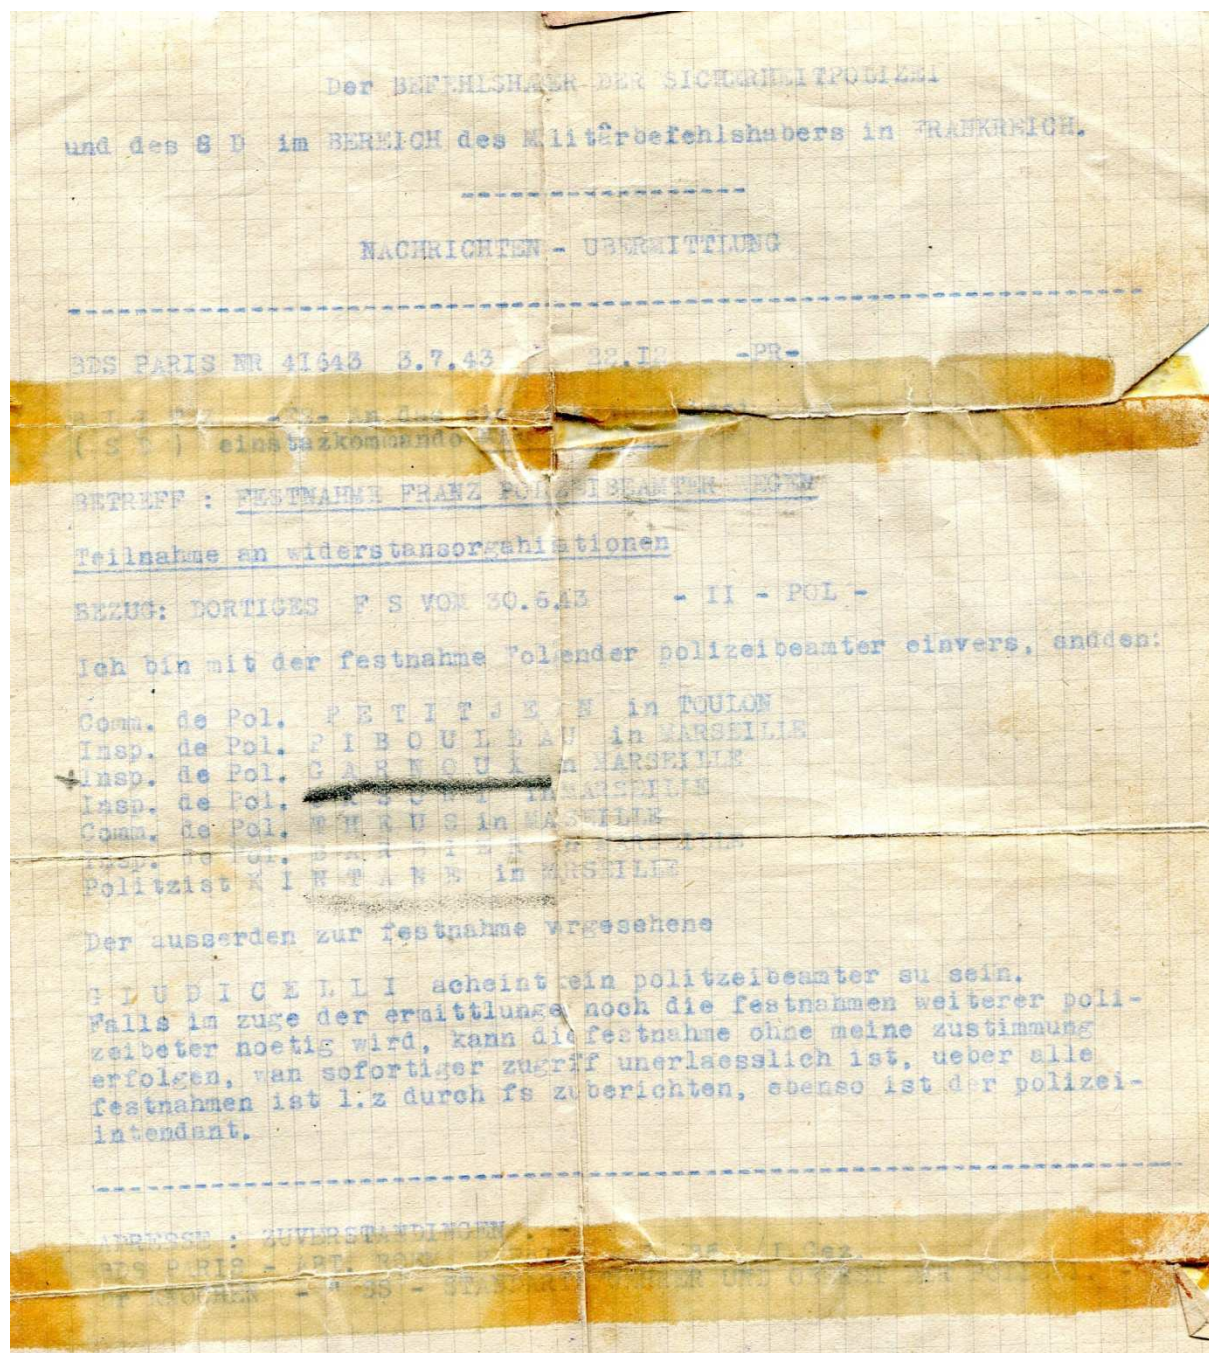 Der BEFEHLSHABER DER SICHERHEITPOLIZEI
und des S D im BEREICH des Militârbefehlshabers in FRANKREICH.
NACHRICHTEN - UBERMITTLUNG
BDS PARIS NR 41643 3.7.43 22.12 -PR-
An das
( S D ) einstazkommando
BETREFF : FESTNAHME FRANZ POLIZEIBEAMTER WEGEN
Teilnahme an widerstansorgahisationen
BEZUG: DORTIGES F S VOM 30.6.43 - II - POL -
Ich bin mit der festnahme folgender polizeibeamter einvers, andden:
Comm. de Pol. P E T I T J E A N in TOULON
Insp. de Pol. P I B O U L E A U in MARSEILLE
+ Insp. de Pol. G A R N O U X in MARSEILLE
Insp. de Pol. in MARSEILLE
Comm. de Pol. T H E U S in MASEILLE
Insp. de Pol. B A R B I E R in MARSEILLE
Politzist K I N T A N E in MRSEILLE
Der ausserden zur festnahme vrgesehene
G I U D I C E L L I acheint kein politzeibeamter su sein.
Falls im zuge der ermittlungen noch die festnahmen weiterer poli-
zeibeter noetig wird, kann die festnahme ohne meine zustimmung
erfolgen, wan sofortiger zugriff unerlaesslich ist, ueber alle
festnahmen ist l.z durch fs zu berichten, ebenso ist der polizei-
intendant.
ADRESSE : ZUVERSTANDINGEN :
BDS PARIS - ABT.
KNOCHEN - " SS - STANDARTENFUHRER UND